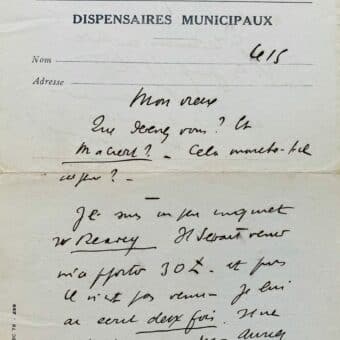 DISPENSAIRES MUNICIPAUX
Nom
Adresse
Mon vieux
Que devenez vous? Et
? - Cela marche-t-il
un peu? -
Je suis un peu inquiet
Il devait venir
m'apporter 30 - et puis
il n'est pas venu - Je lui
ai écrit deux fois. Il ne